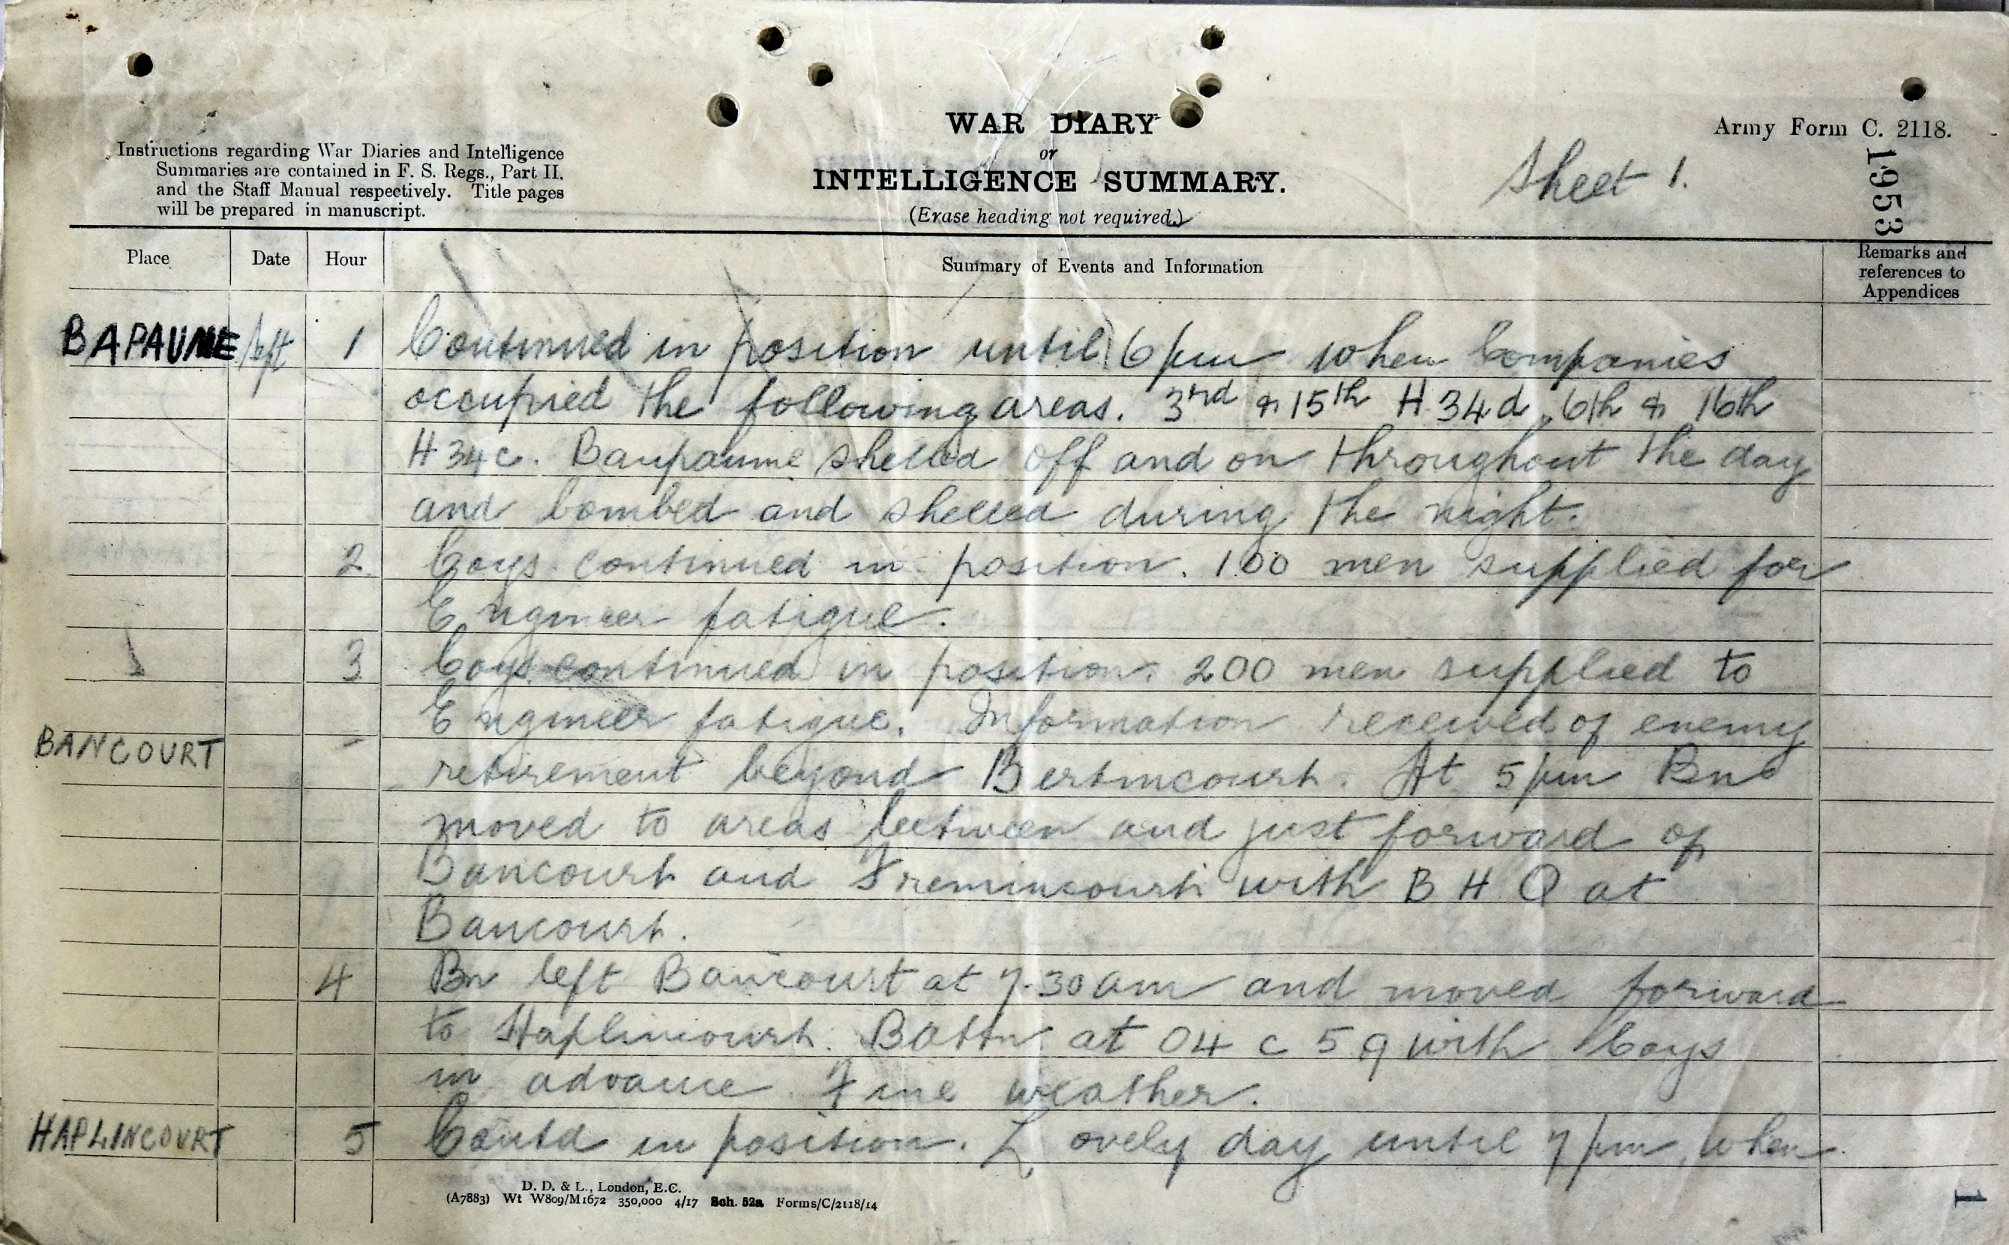 WAR DIARY
or
INTELLIGENCE SUMMARY.
(Erase heading not required.)
Instructions regarding War Diaries and Intelligence
Summaries are contained in F. S. Regs., Part II.
and the Staff Manual respectively. Title pages
will be prepared in manuscript.
Army Form C. 2118.
Sheet 1.
1953
Place Date Hour Summary of Events and Information Remarks and
references to
Appendices
BAPAUME 1 Continued in position until 6 pm when Companies
occupied the following areas. 3rd & 15th H 34 d, 6th & 16th
H 34c. Baupaume shelled off and on throughout the day
and bombed and shelled during the night.
2 Coys continued in position. 100 men supplied for
Engineer fatigue.
3 Coys continued in position. 200 men supplied to
Engineer fatigue. Information received of enemy
BANCOURT retirement beyond Bertincourt. At 5 pm Bn
moved to areas between and just forward of
Bancourt and Fremincourt with B H Q at
Bancourt.
4 Bn left Bancourt at 7.30 am and moved forward
to Haplincourt. Battn at O4 c 5 9 with Coys
in advance. Fine weather.
HAPLINCOURT 5 Contd in position. Lovely day until 7 pm, when
D. D. & L., London, E.C.
(A7883) Wt W809/M1672 350,000 4/17 Sch. 52a Forms/C/2118/14
1